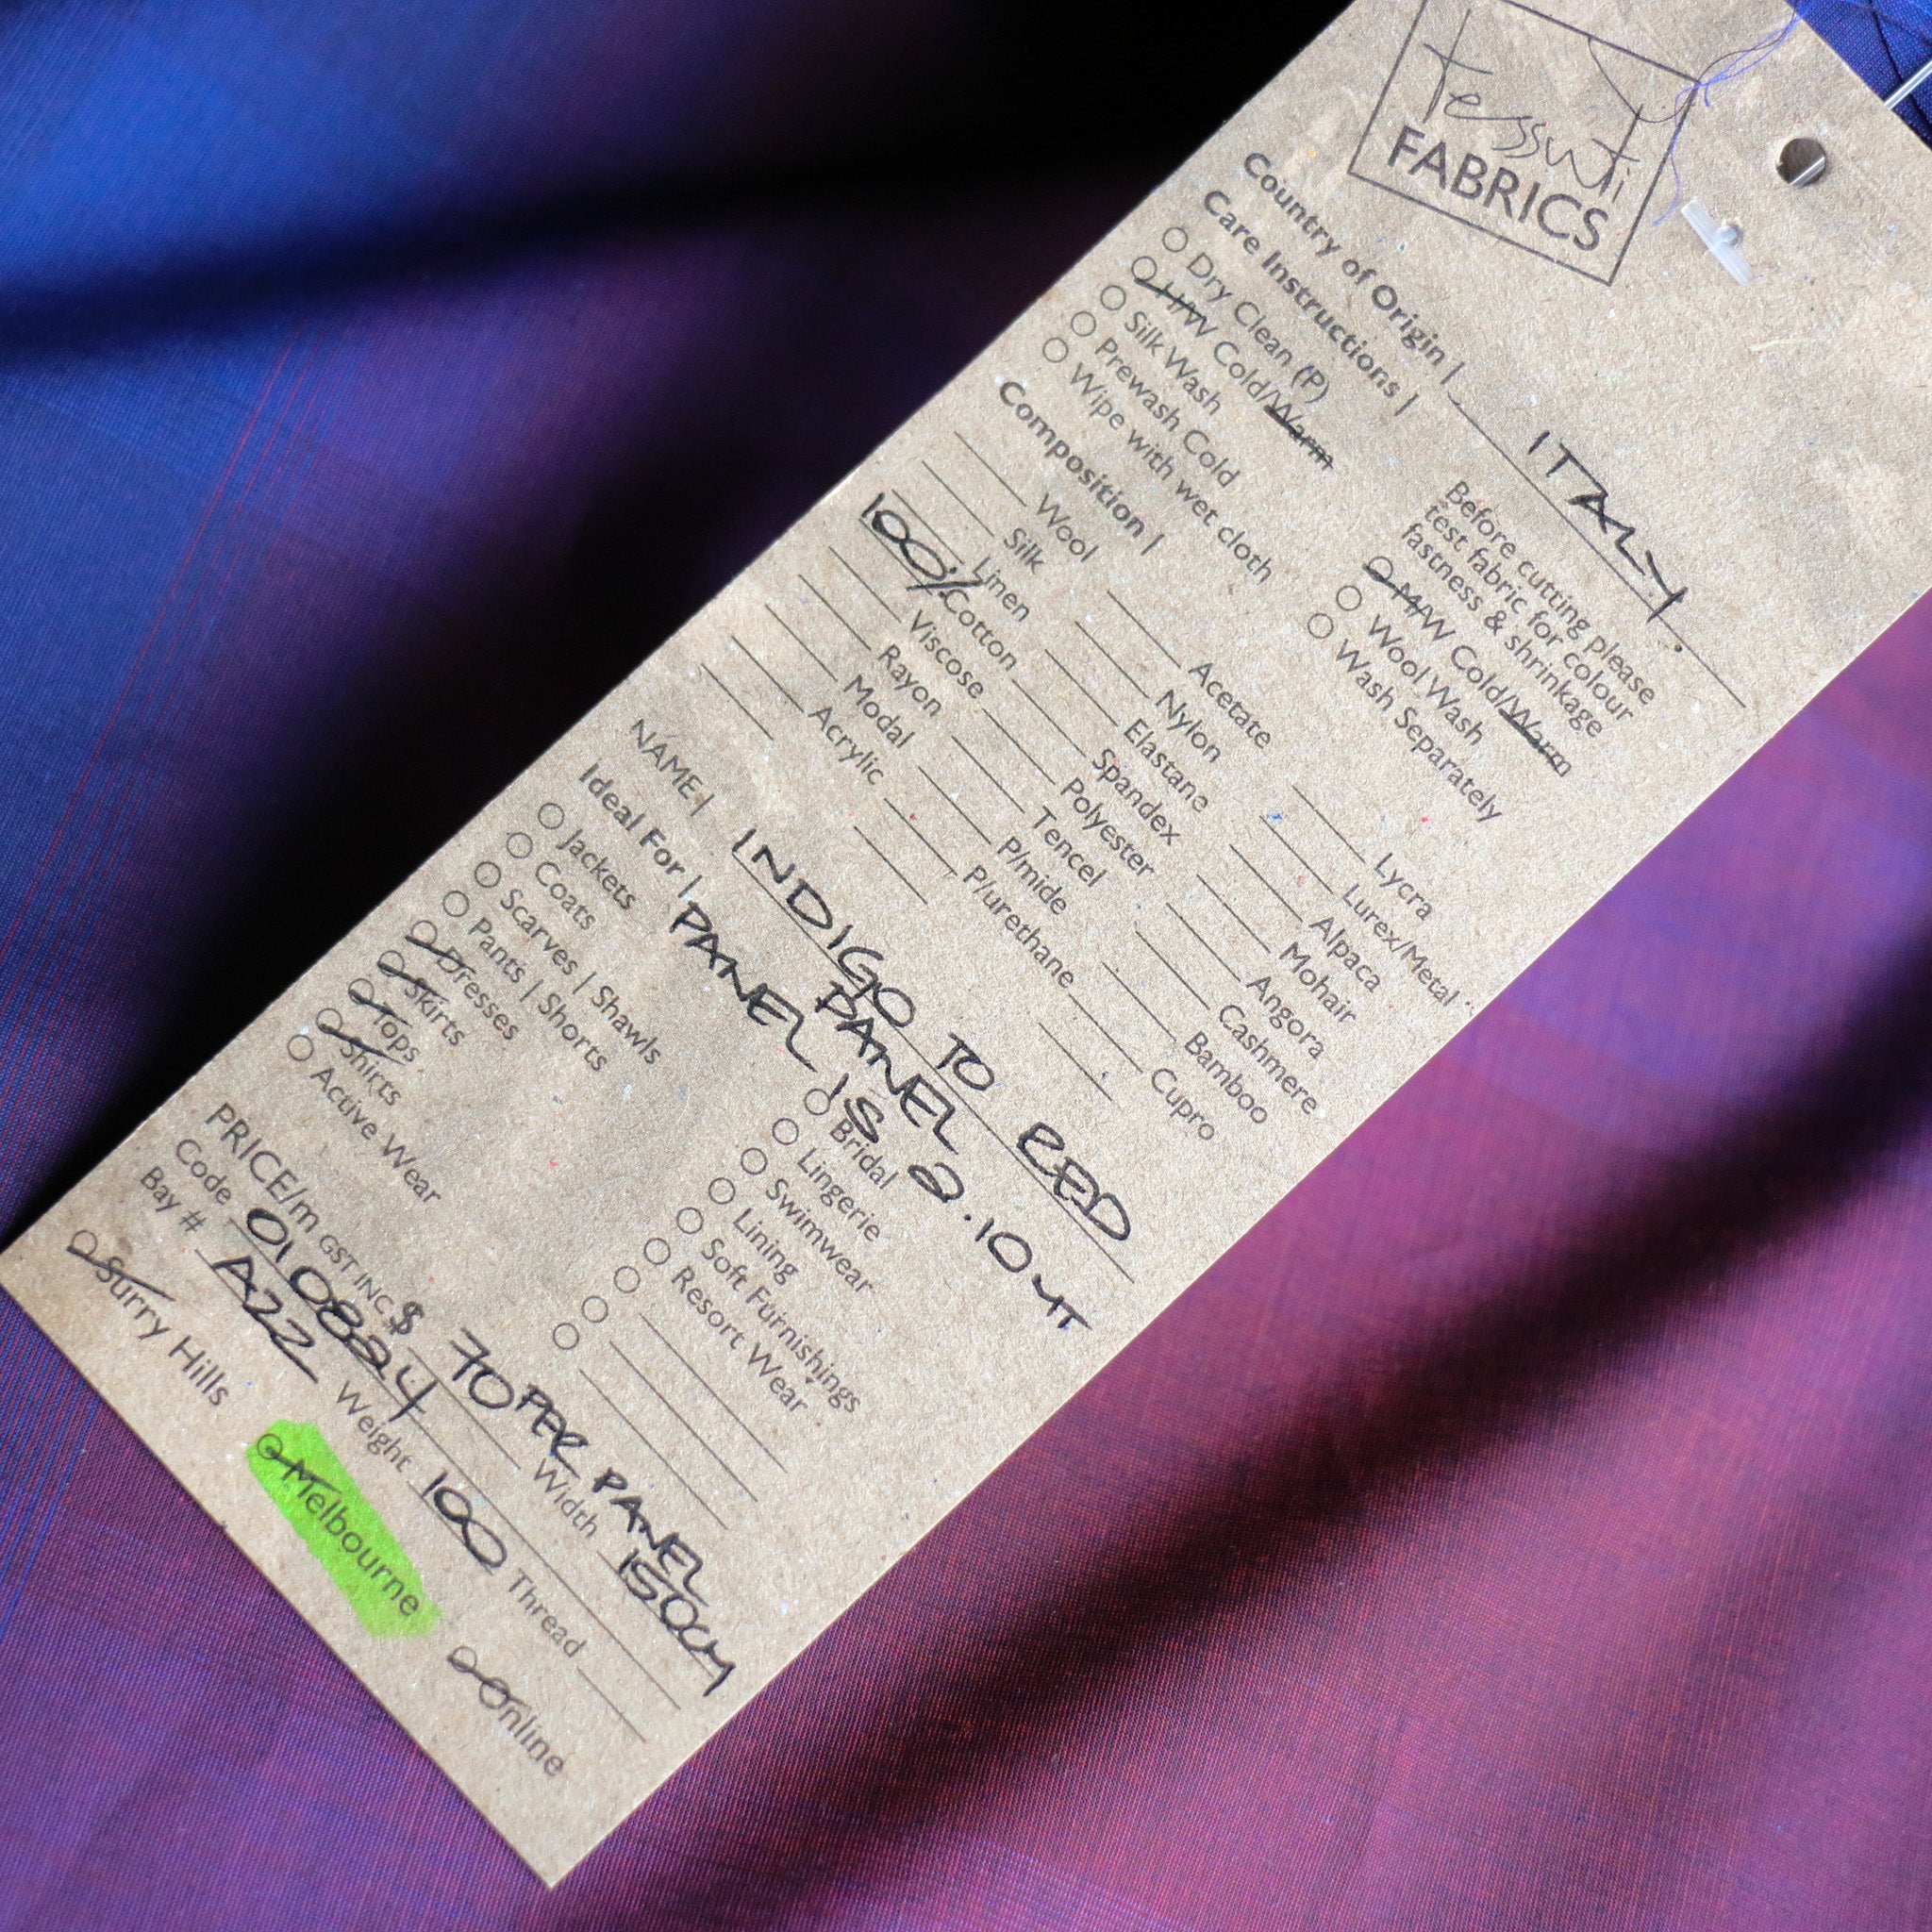 Tessuti
FABRICS
Country of Origin | ITALY
Care Instructions |
Before cutting please
test fabric for colour
fastness & shrinkage
Dry Clean (P)
H/W Cold/Warm
Silk Wash
Prewash Cold
Wipe with wet cloth
M/W Cold/Warm
Wool Wash
Wash Separately
Composition |
Wool
Silk
Linen
100% Cotton
Viscose
Rayon
Modal
Acrylic
Acetate
Nylon
Elastane
Spandex
Polyester
Tencel
P/mide
P/urethane
Lycra
Lurex/Metal
Alpaca
Mohair
Angora
Cashmere
Bamboo
Cupro
NAME | INDIGO TO RED
PANEL
Ideal For | PANEL IS 2.10 MT
Jackets
Coats
Scarves | Shawls
Pants | Shorts
Dresses
Skirts
Tops
Shirts
Active Wear
Bridal
Lingerie
Swimwear
Lining
Soft Furnishings
Resort Wear
PRICE/m GST INC $ 70 PER PANEL
Code 010824 Width 150CM
Bay # A22 Weight 100 Thread
Surry Hills Melbourne Online